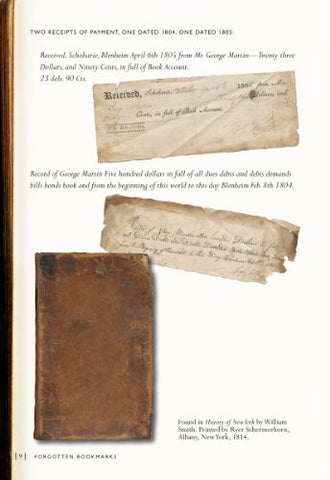 TWO RECEIPTS OF PAYMENT, ONE DATED 1804, ONE DATED 1805:
Received, Schoharie, Blenheim April 6th 1805 from Mr. George Martin—Twenty three
Dollars, and Ninety Cents, in full of Book Account.
23 dols. 90 Cts.
Received, Schoharie, 1805 from Mr.
Dollars, and
Cents, in full of Book Account.
Record of George Martin Five hundred dollars in full of all dues debts and debts demands
bills bonds book and from the beginning of this world to this day Blenheim Feb. 8th 1804.
Found in History of New York by William
Smith. Printed by Ryer Schermerhorn,
Albany, New York, 1814.
[ 9 ] FORGOTTEN BOOKMARKS